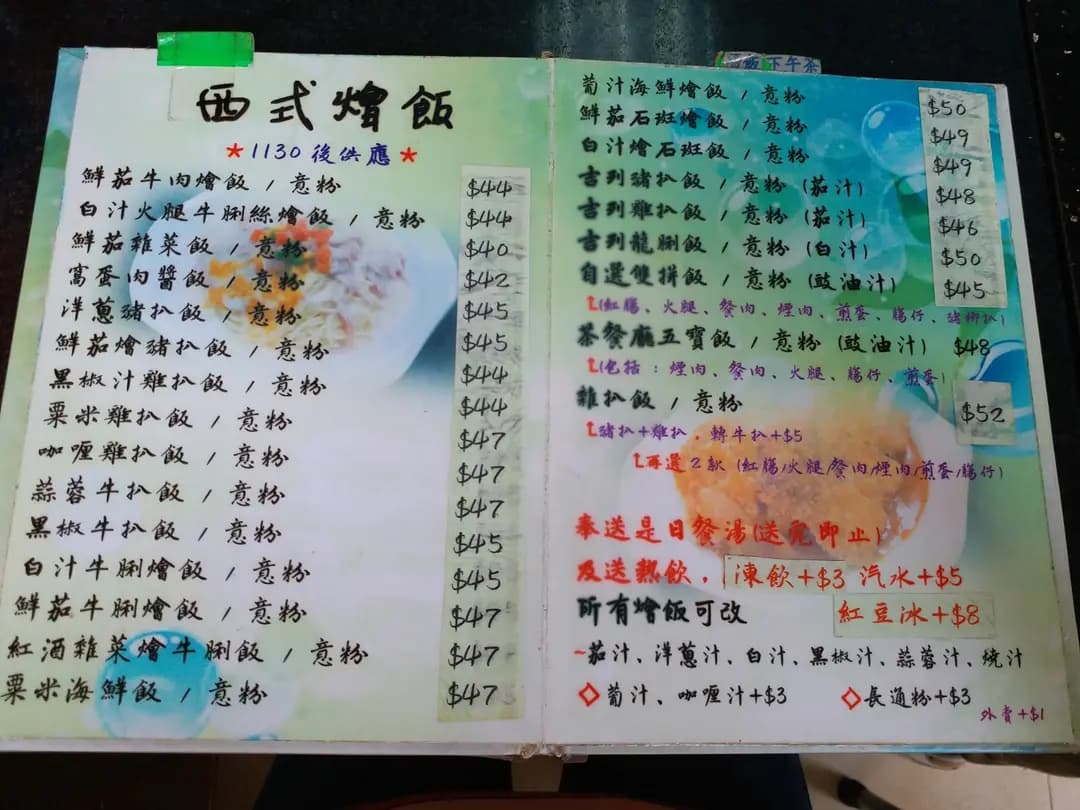 西式燴飯
★1130後供應★
鮮茄牛肉燴飯 / 意粉
白汁火腿牛脷絲燴飯 / 意粉
鮮茄雜菜飯 / 意粉
窩蛋肉醬飯 / 意粉
洋蔥豬扒飯 / 意粉
鮮茄燴豬扒飯 / 意粉
黑椒汁雞扒飯 / 意粉
粟米雞扒飯 / 意粉
咖喱雞扒飯 / 意粉
蒜蓉牛扒飯 / 意粉
黑椒牛扒飯 / 意粉
白汁牛脷燴飯 / 意粉
鮮茄牛脷燴飯 / 意粉
紅酒雜菜燴牛脷飯 / 意粉
粟米海鮮飯 / 意粉
$44
$44
$40
$42
$45
$45
$44
$44
$47
$47
$47
$45
$45
$47
$47
$47
下午茶
葡汁海鮮燴飯 / 意粉 $50
鮮茄石斑燴飯 / 意粉 $49
白汁燴石斑飯 / 意粉 $49
吉列豬扒飯 / 意粉 (茄汁) $48
吉列雞扒飯 / 意粉 (茄汁) $46
吉列龍脷飯 / 意粉 (白汁) $50
自選雙拼飯 / 意粉 (豉油汁) $45
(紅腸、火腿、餐肉、煙肉、煎蛋、腸仔、豬柳扒)
茶餐廳五寶飯 / 意粉 (豉油汁) $48
(包括：煙肉、餐肉、火腿、腸仔、煎蛋)
雜扒飯 / 意粉 $52
豬扒+雞扒，轉牛扒+$5
再選2款 (紅腸/火腿/餐肉/煙肉/煎蛋/腸仔)
奉送是日餐湯(送完即止)
及送熱飲，凍飲+$3 汽水+$5
所有燴飯可改 紅豆冰+$8
~茄汁、洋蔥汁、白汁、黑椒汁、蒜蓉汁、燒汁
◇葡汁、咖喱汁+$3 ◇長通粉+$3
外賣+$1